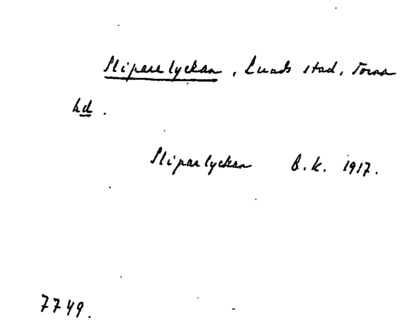 Sliparelyckan, Lunds stad, Torna
hd.
Sliparlyckan B.K. 1917.
7749.